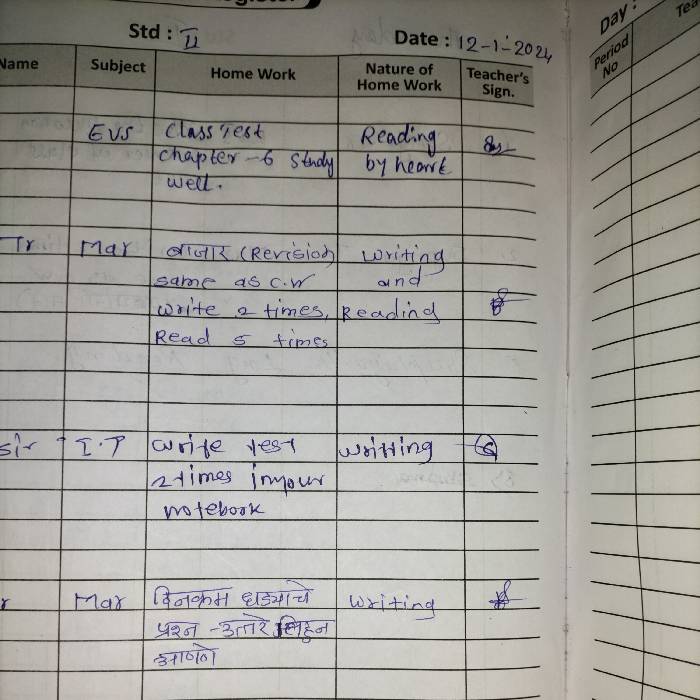 Std : II Date : 12-1-2024
Name Subject Home Work Nature of Home Work Teacher's Sign.
EVS Class Test Reading
chapter-6 Study by heart
well.
Tr Mar बाजार (Revision) writing
same as c.w and
write 2 times, Reading
Read 5 times
sir I.T write test writting
2 times in your
notebook
r Mar दिनक्रम धड्याचे writing
प्रश्न-उत्तरे लिहुन
आणणे
Day :
Period No
Tea